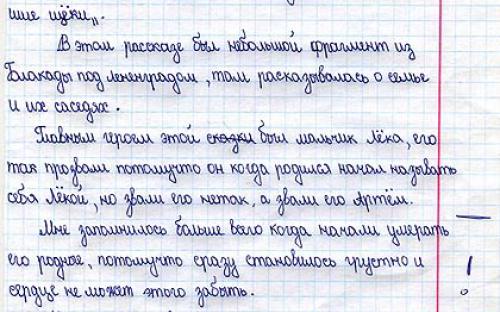 шие щёки„.
В этом рассказе был небольшой фрагмент из
Блокады под лененградом, там расказывалась о семье
и их саседях.
Главным героем этой сказки был мальчик Лёка, его
так прозвали потамучто он когда родился начал называть
себя Лёкой, но звали его нетак, а звали его Артём.
Мне запомнилось больше всего когда начали умерать
его родные, потомучто сразу становилось грустно и
сердце не может этого забыть.